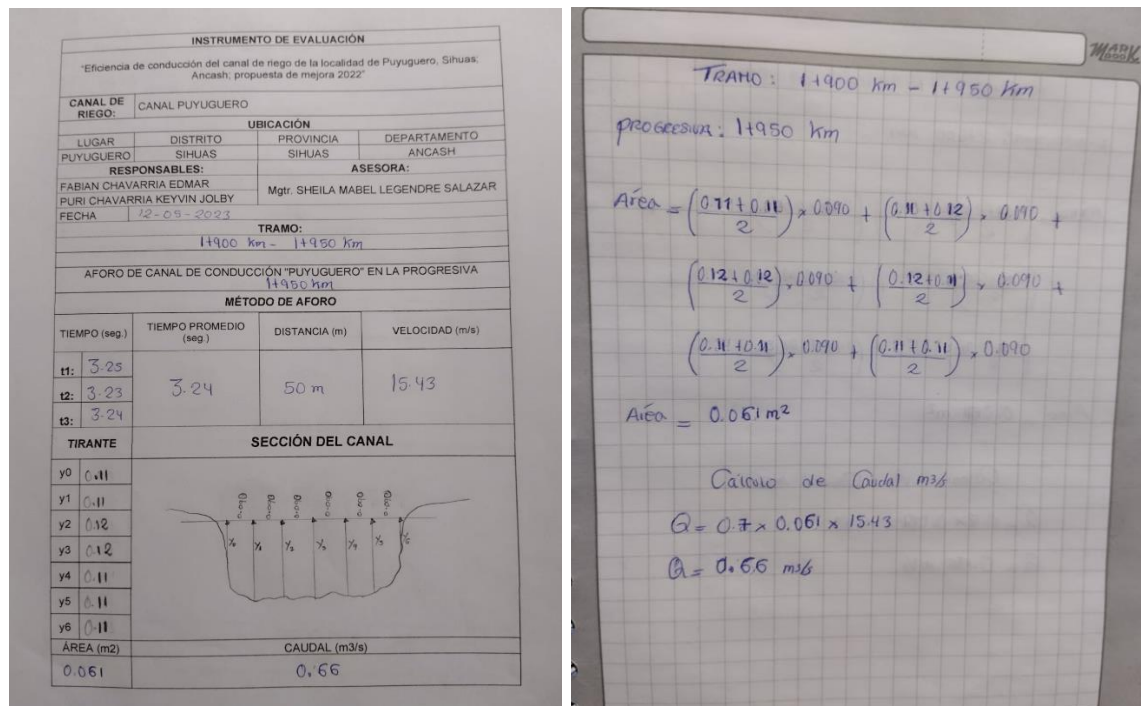 INSTRUMENTO DE EVALUACIÓN
"Eficiencia de conducción del canal de riego de la localidad de Puyuguero, Sihuas;
Ancash; propuesta de mejora 2022"
CANAL DE RIEGO: CANAL PUYUGUERO
UBICACIÓN
LUGAR DISTRITO PROVINCIA DEPARTAMENTO
PUYUGUERO SIHUAS SIHUAS ANCASH
RESPONSABLES: ASESORA:
FABIAN CHAVARRIA EDMAR
PURI CHAVARRIA KEYVIN JOLBY
Mgtr. SHEILA MABEL LEGENDRE SALAZAR
FECHA 12-09-2023
TRAMO:
1+900 km - 1+950 km
AFORO DE CANAL DE CONDUCCIÓN "PUYUGUERO" EN LA PROGRESIVA
1+950 km
MÉTODO DE AFORO
TIEMPO (seg.) TIEMPO PROMEDIO (seg.) DISTANCIA (m) VELOCIDAD (m/s)
t1: 3.25
t2: 3.23
t3: 3.24
3.24 50 m 15.43
TIRANTE SECCIÓN DEL CANAL
y0 0.11
y1 0.11
y2 0.12
y3 0.12
y4 0.11
y5 0.11
y6 0.11
ÁREA (m2) CAUDAL (m3/s)
0.061 0.66
TRAMO: 1+900 km - 1+950 km
PROGRESIVA: 1+950 km
Área = (0.11+0.11/2) x 0.090 + (0.11+0.12/2) x 0.090 +
(0.12+0.12/2) x 0.090 + (0.12+0.11/2) x 0.090 +
(0.11+0.11/2) x 0.090 + (0.11+0.11/2) x 0.090
Área = 0.061 m2
Cálculo de Caudal m3/s
Q = 0.7 x 0.061 x 15.43
Q = 0.66 m3/s